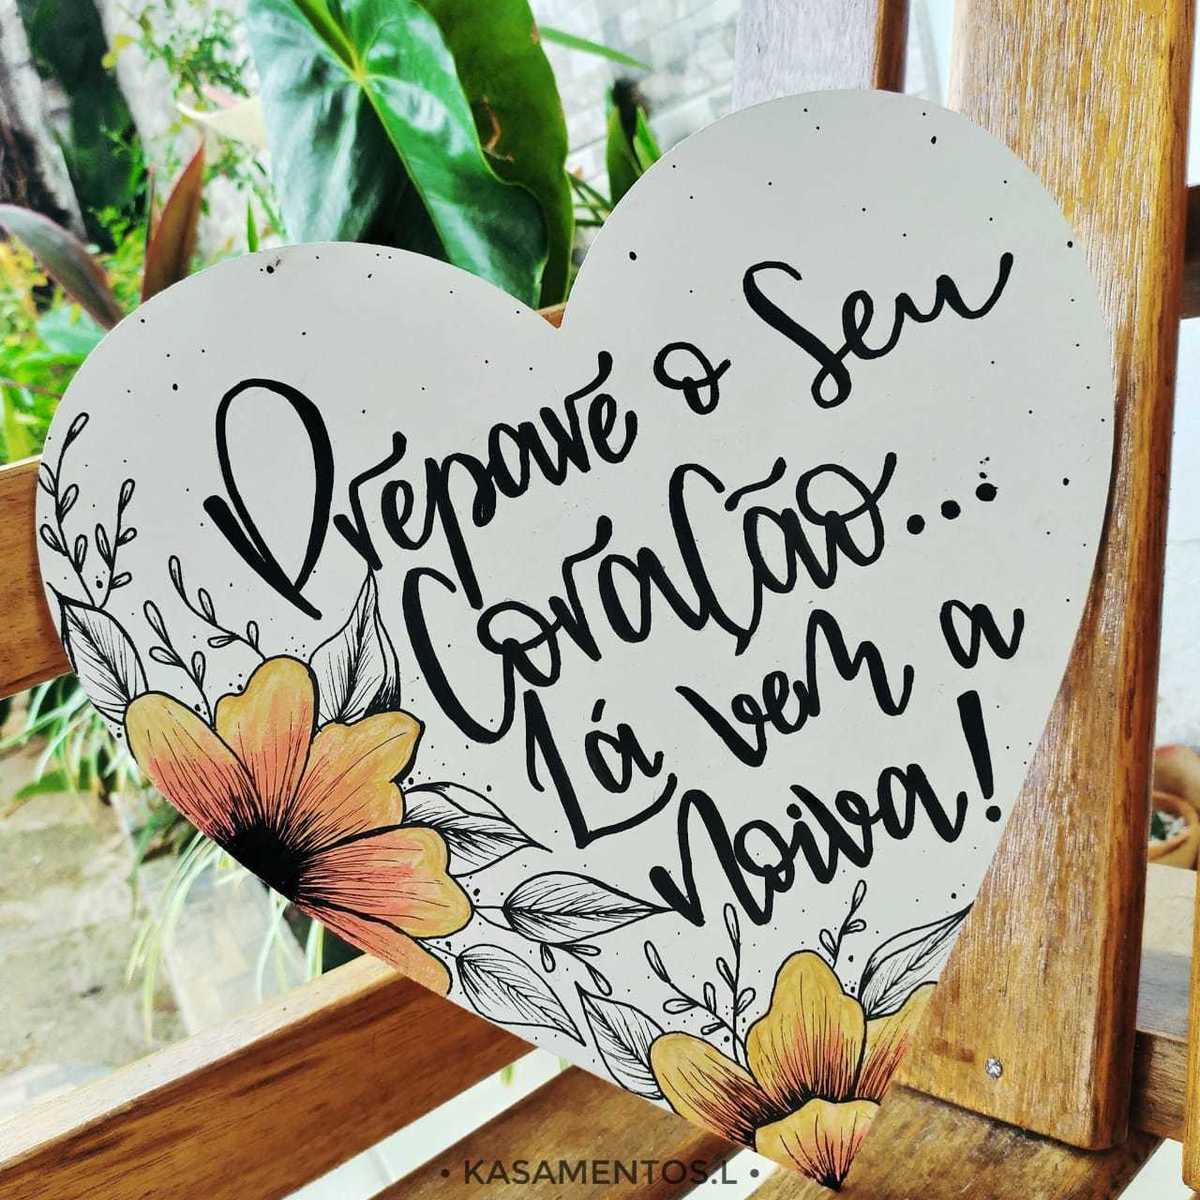 Prepare o Seu
Coração...
Lá vem a
Noiva!
• KASAMENTOS.L •